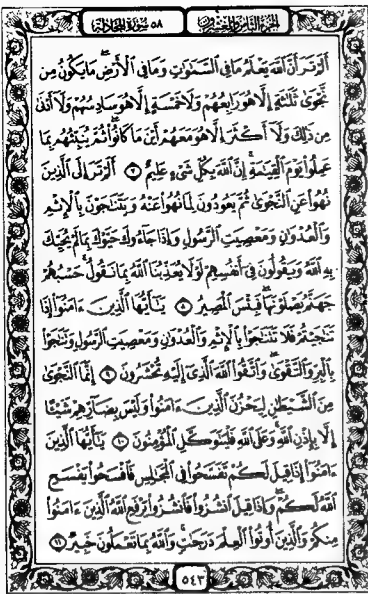 الجزء الثامن والعشرون ٥٨ سورة المجادلة
أَلَمْ تَرَ أَنَّ ٱللَّهَ يَعْلَمُ مَا فِي ٱلسَّمَٰوَٰتِ وَمَا فِي ٱلْأَرْضِ ۖ مَا يَكُونُ مِن
نَّجْوَىٰ ثَلَٰثَةٍ إِلَّا هُوَ رَابِعُهُمْ وَلَا خَمْسَةٍ إِلَّا هُوَ سَادِسُهُمْ وَلَآ أَدْنَىٰ
مِن ذَٰلِكَ وَلَآ أَكْثَرَ إِلَّا هُوَ مَعَهُمْ أَيْنَ مَا كَانُوا۟ ۖ ثُمَّ يُنَبِّئُهُم بِمَا
عَمِلُوا۟ يَوْمَ ٱلْقِيَٰمَةِ ۚ إِنَّ ٱللَّهَ بِكُلِّ شَىْءٍ عَلِيمٌ ٧ أَلَمْ تَرَ إِلَى ٱلَّذِينَ
نُهُوا۟ عَنِ ٱلنَّجْوَىٰ ثُمَّ يَعُودُونَ لِمَا نُهُوا۟ عَنْهُ وَيَتَنَٰجَوْنَ بِٱلْإِثْمِ
وَٱلْعُدْوَٰنِ وَمَعْصِيَتِ ٱلرَّسُولِ وَإِذَا جَآءُوكَ حَيَّوْكَ بِمَا لَمْ يُحَيِّكَ
بِهِ ٱللَّهُ وَيَقُولُونَ فِىٓ أَنفُسِهِمْ لَوْلَا يُعَذِّبُنَا ٱللَّهُ بِمَا نَقُولُ ۚ حَسْبُهُمْ
جَهَنَّمُ يَصْلَوْنَهَا ۖ فَبِئْسَ ٱلْمَصِيرُ ٨ يَٰٓأَيُّهَا ٱلَّذِينَ ءَامَنُوٓا۟ إِذَا
تَنَٰجَيْتُمْ فَلَا تَتَنَٰجَوْا۟ بِٱلْإِثْمِ وَٱلْعُدْوَٰنِ وَمَعْصِيَتِ ٱلرَّسُولِ وَتَنَٰجَوْا۟
بِٱلْبِرِّ وَٱلتَّقْوَىٰ ۖ وَٱتَّقُوا۟ ٱللَّهَ ٱلَّذِىٓ إِلَيْهِ تُحْشَرُونَ ٩ إِنَّمَا ٱلنَّجْوَىٰ
مِنَ ٱلشَّيْطَٰنِ لِيَحْزُنَ ٱلَّذِينَ ءَامَنُوا۟ وَلَيْسَ بِضَآرِّهِمْ شَيْـًٔا
إِلَّا بِإِذْنِ ٱللَّهِ ۚ وَعَلَى ٱللَّهِ فَلْيَتَوَكَّلِ ٱلْمُؤْمِنُونَ ١٠ يَٰٓأَيُّهَا ٱلَّذِينَ
ءَامَنُوٓا۟ إِذَا قِيلَ لَكُمْ تَفَسَّحُوا۟ فِى ٱلْمَجَٰلِسِ فَٱفْسَحُوا۟ يَفْسَحِ
ٱللَّهُ لَكُمْ ۖ وَإِذَا قِيلَ ٱنشُزُوا۟ فَٱنشُزُوا۟ يَرْفَعِ ٱللَّهُ ٱلَّذِينَ ءَامَنُوا۟
مِنكُمْ وَٱلَّذِينَ أُوتُوا۟ ٱلْعِلْمَ دَرَجَٰتٍ ۚ وَٱللَّهُ بِمَا تَعْمَلُونَ خَبِيرٌ ١١
٥٤٣